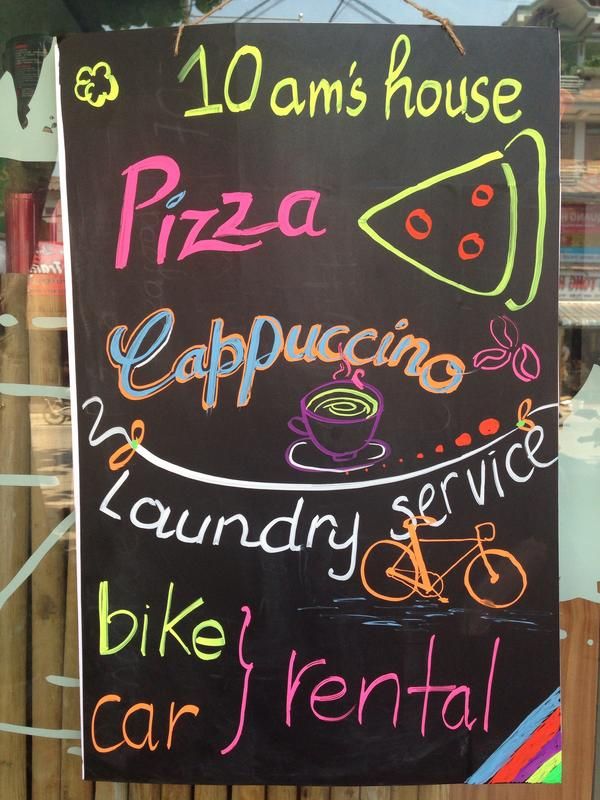 10 am's house
Pizza
Cappuccino
Laundry service
bike
car } rental